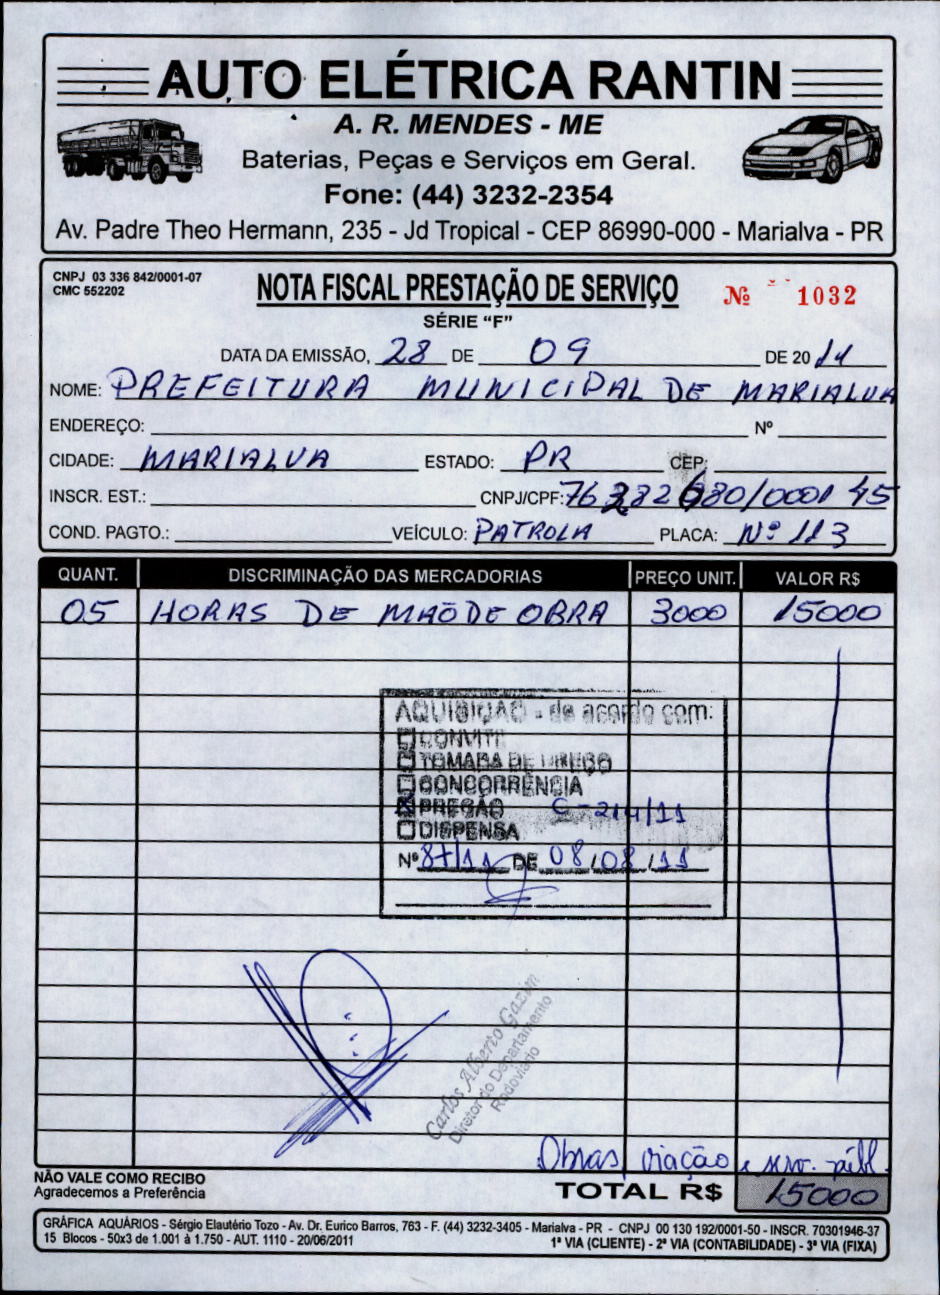 AUTO ELÉTRICA RANTIN
A. R. MENDES - ME
Baterias, Peças e Serviços em Geral.
Fone: (44) 3232-2354
Av. Padre Theo Hermann, 235 - Jd Tropical - CEP 86990-000 - Marialva - PR
CNPJ 03 336 842/0001-07
CMC 552202
NOTA FISCAL PRESTAÇÃO DE SERVIÇO
Nº 1032
SÉRIE "F"
DATA DA EMISSÃO, 28 DE 09 DE 2011
NOME: PREFEITURA MUNICIPAL DE MARIALVA
ENDEREÇO: Nº
CIDADE: MARIALVA ESTADO: PR CEP:
INSCR. EST.: CNPJ/CPF: 76282680/0001 45
COND. PAGTO.: VEÍCULO: PATROLA PLACA: Nº 113
QUANT. DISCRIMINAÇÃO DAS MERCADORIAS PREÇO UNIT. VALOR R$
05 HORAS DE MAÕ DE OBRA 3000 15000
AQUISIÇÃO - de acordo com:
CONVITE
TOMADA DE PREÇO
CONCORRÊNCIA
PREGÃO C-214/11
DISPENSA
Nº 87/11 DE 08/08/11
Carlos Alberto Gazim
Diretor do Departamento
Rodoviário
Obras viação e serv. públ.
NÃO VALE COMO RECIBO
Agradecemos a Preferência
TOTAL R$ 15000
GRÁFICA AQUÁRIOS - Sérgio Elautério Tozo - Av. Dr. Eurico Barros, 763 - F. (44) 3232-3405 - Marialva - PR - CNPJ 00 130 192/0001-50 - INSCR. 70301946-37
15 Blocos - 50x3 de 1.001 à 1.750 - AUT. 1110 - 20/06/2011 1ª VIA (CLIENTE) - 2ª VIA (CONTABILIDADE) - 3ª VIA (FIXA)